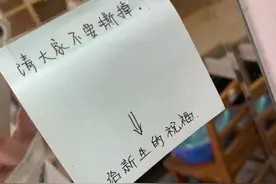 请大家不要撕掉.
给新生的祝福.